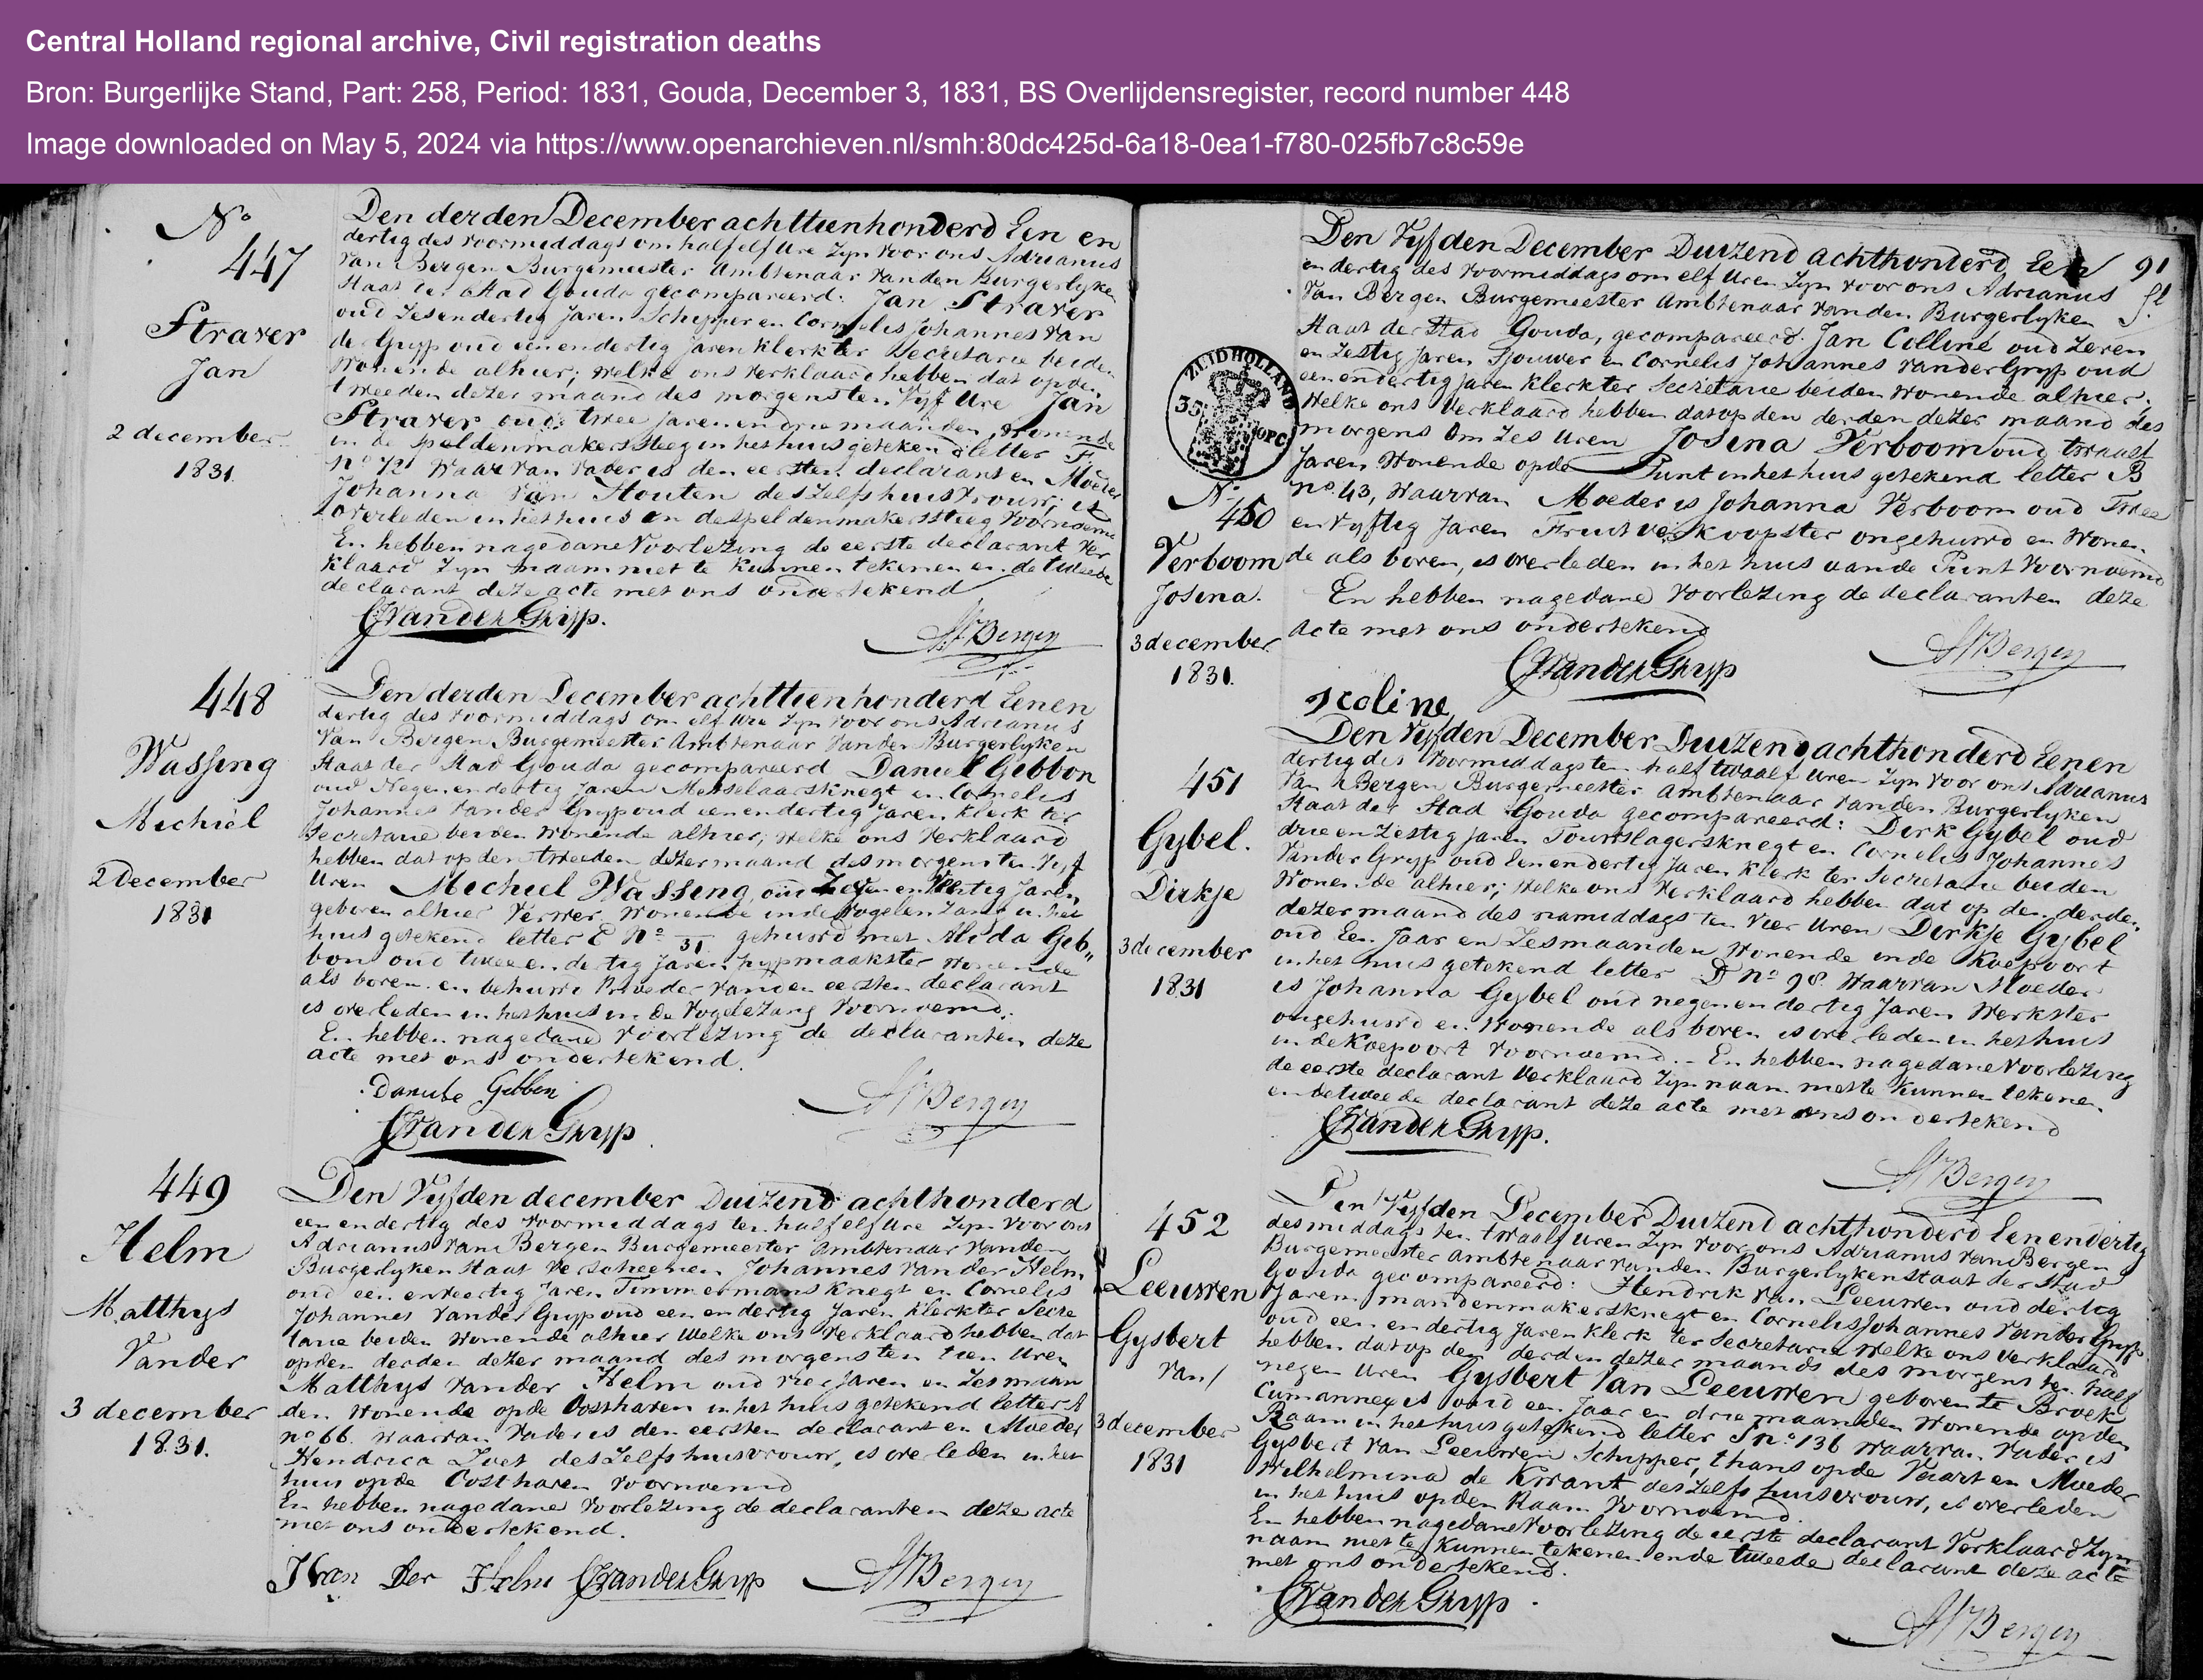 Central Holland regional archive, Civil registration deaths
Bron: Burgerlijke Stand, Part: 258, Period: 1831, Gouda, December 3, 1831, BS Overlijdensregister, record number 448
Image downloaded on May 5, 2024 via https://www.openarchieven.nl/smh:80dc425d-6a18-0ea1-f780-025fb7c8c59e
No
447
Straver
Jan
2 december
1831.
Den derden December achttienhonderd Een en
dertig des voormiddags om half elf Ure Zyn voor ons Adrianus
Van Bergen Burgemeester Ambtenaar vanden Burgerlyke
Staat der Stad Gouda gecompareerd: Jan Straver
oud Zesendertig Jaren Schipper en Cornelis Johannes van
der Gryp oud eenendertig Jaren Klerk ter Secretarie beide
Wonende alhier; welke ons verklaard hebben dat op den
tweeden dezer maand des morgens ten Vyf Ure Jan
Straver oud twee Jaren en drie maanden, Wonende
in de Speldenmakerssteeg in het huis getekend letter F
No 72 Waar van Vader is den eersten declarant en Moeder
Johanna Van Houten deszelfs huisvrouw; is
overleden in het huis in de Speldenmakerssteeg voornoemd
En hebben nagedane Voorlezing de eerste declarant ver
klaard Zyn naam niet te kunnen tekenen en de tweede
declarant deze acte met ons ondertekend
CJvanderGrijp.
AVBergen
448
Wassing
Michiel
2 December
1831
Den derden December achttienhonderd Eenen
dertig des voormiddags om elf Ure Zyn voor ons Adrianus
Van Bergen Burgemeester Ambtenaar vanden Burgerlyken
Staat der Stad Gouda gecompareerd Daniel Gibbon
oud Negenendertig Jaren Metselaarsknegt en Cornelis
Johannes vander Gryp oud eenendertig Jaren Klerk ter
Secretarie beiden Wonende alhier; welke ons Verklaard
hebben dat op den tweeden dezer maand des morgens ten Vyf
Uren Michiel Wassing, oud en Jaren
geboren alhier Verwer, Wonende inde Vogelenzang in het
huis getekend letter E No 31 gehuwd met Alida Gib„
bon oud twee en dertig Jaren, wonende
als boven en behuwd Broeder vanden eersten declarant
is overleden in het huis in de Vogelezang Voornoemd.
En hebben nagedane Voorlezing de declaranten deze
acte met ons ondertekend.
Gibbon
CJvanderGrijp
AVBergen
449
Helm
Matthys
Vander
3 december
1831.
Den Vyfden december Duizend achthonderd
een en dertig des voormiddags ten half elf Ure Zyn voor ons
Adrianus Van Bergen Burgemeester Ambtenaar Vanden
Burgerlyken Staat verscheenen Johannes van der Helm
oud een enveertig Jaren Timmermans Knegt en Cornelis
Johannes Vander Gryp oud een en dertig Jaren Klerk ter Secre
tarie beiden Wonende alhier Welke ons Verklaard hebben dat
op den derden dezer maand des morgens ten tien Uren
Matthys Vander Helm oud Jaren en Zes maan
den Wonende op de Oosthaven in het huis getekend letter A
no 66. waarvan Vader is den eersten declarant en Moeder
Hendrica deszelfs huisvrouw, is overleden in het
huis op de Oosthaven voornoemd
En hebben nagedane Voorlezing de declaranten deze acte
met ons ondertekend.
JVan Der Helm CJvanderGrijp AVBergen
91
ZUIDHOLLAND
35
OPC
No
450
Verboom
Josina.
3 december
1831.
Den Vyfden December Duizend achthonderd Een
en dertig des voormiddags om elf Uren Zyn voor ons Adrianus
Van Bergen Burgemeester Ambtenaar vanden Burgerlyken
Staat der Stad Gouda, gecompareerd. Jan Colliné oud Zeven
en Zestig Jaren Sjouwer en Cornelis Johannes VanderGryp oud
een en dertig Jaren Klerk ter Secretarie beiden Wonende alhier;
Welke ons Verklaard hebben dat op den derden dezer maand des
morgens Om Zes Uren Josina Verboom oud twaalf
Jaren Wonende op de Punt in het huis getekend letter B
no. 43, Waarvan Moeder is Johanna Verboom oud Twee
en Vyftig Jaren Fruitverkoopster ongehuwd en Wonen
de als boven, is overleden in het huis aande Punt Voornoemd
En hebben nagedane Voorlezing de declaranten deze
acte met ons ondertekend
CJvanderGrijp
AVBergen
451
Gybel.
Dirkje
3 december
1831
Den Vyfden December Duizend achthonderd Eenen
dertig des Voormiddags ten half twaalf Uren Zyn voor ons Adrianus
Van Bergen Burgemeester Ambtenaar vanden Burgerlyken
Staat der Stad Gouda gecompareerd: Dirk Gybel oud
drie en Zestig Jaren Touwslagersknegt en Cornelis Johannes
Vander Gryp oud Een en dertig Jaren Klerk ter Secretarie beiden
Wonende alhier; Welke ons Verklaard hebben dat op den derden
dezer maand des namiddags ten Vier Uren Dirkje Gybel
oud Een Jaar en Zes maanden Wonende inde Koepoort
in het huis getekend letter D no 98. Waarvan Moeder
is Johanna Gybel oud negenendertig Jaren Werkster
ongehuwd en Wonende als boven is overleden in het huis
in de Koepoort Voornoemd. - En hebben nagedane Voorlezing
de eerste declarant Verklaard Zyn naam niet te Kunnen tekenen
en de tweede declarant deze acte met ons ondertekend
CJvanderGrijp.
AVBergen
452
Leeuwen
Gysbert
van
3 december
1831
Den Vyfden December Duizend achthonderd Eenendertig
des middags ten twaalf Uren Zyn voor ons Adrianus van Bergen
Burgemeester Ambtenaar vanden Burgerlyken Staat der Stad
Gouda gecompareerd: Hendrik Van Leeuwen oud dertig
Jaren mandenmakersknegt en Cornelis Johannes Vander Gryp
oud een en dertig Jaren Klerk ter Secretarie welke ons Verklaard
hebben dat op den derden dezer maands des morgens ten half
negen Uren Gysbert Van Leeuwen geboren te Broek
oud een Jaar en drie maanden Wonende op den
Raam in het huis getekend letter no. 136 waarvan Vader is
Gysbert Van Leeuwen Schipper, thans op de Vaart en Moeder
Wilhelmina de Krant deszelfs huisvrouw, is overleden
in het huis op den Raam Voornoemd.
En hebben nagedane Voorlezing de eerste declarant Verklaard Zyn
naam niet te Kunnen tekenen en de tweede declarant deze acte
met ons ondertekend.
CJvanderGrijp
AVBergen